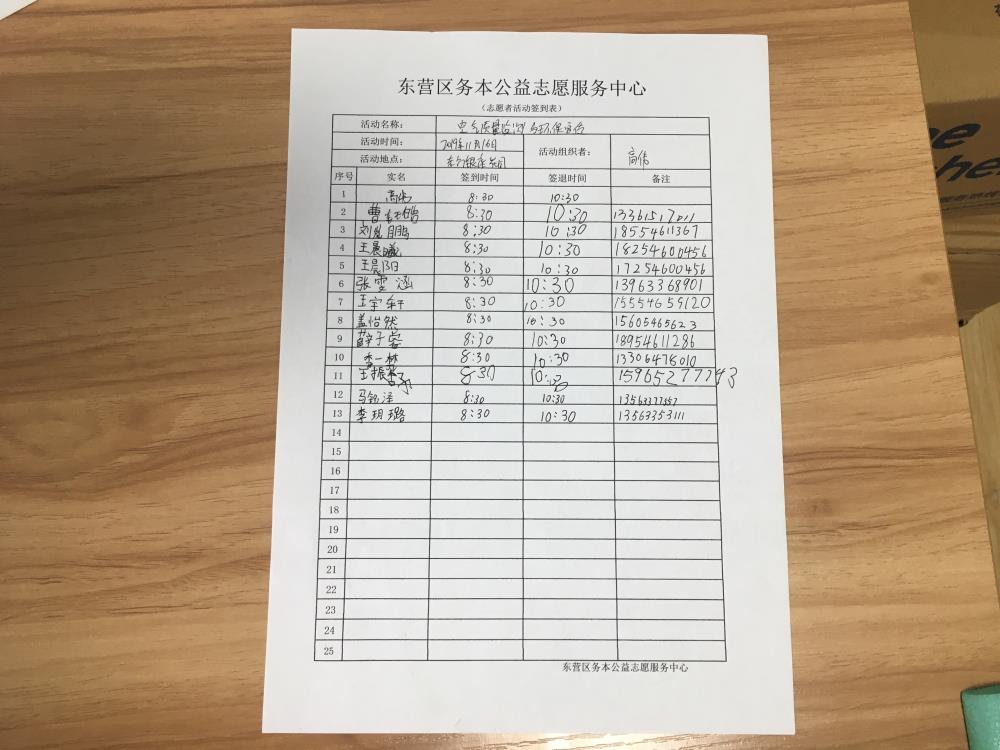 东营区务本公益志愿服务中心
(志愿者活动签到表)
活动名称: 空气质量监测与环保宣传
活动时间: 2019年11月16日 活动组织者: 高伟
活动地点:
序号 实名 签到时间 签退时间 备注
1 高伟 8:30 10:30
2 曹 8:30 10:30 13361517011
3 刘 鹏 8:30 10:30 18554611367
4 王晨曦 8:30 10:30 18254600456
5 王晨阳 8:30 10:30 17254600456
6 张雯涵 8:30 10:30 13963368901
7 王宇轩 8:30 10:30 15554659120
8 盖怡然 8:30 10:30 15605465623
9 薛子蓉 8:30 10:30 18954611286
10 李一林 8:30 10:30 13306478010
11 王振 8:30 10:30 15965277743
12 马铭泽 8:30 10:30 13563377357
13 李玥璐 8:30 10:30 13563353111
14
15
16
17
18
19
20
21
22
23
24
25
东营区务本公益志愿服务中心